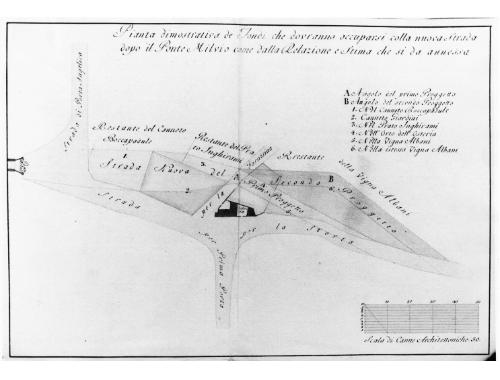 Pianta dimostrativa de Fondi che dovranno occuparsi colla nuova Strada
dopo il Ponte Milvio come dalla Relazione e Stima che si da annessa
A Angolo del primo Proggetto
B Angolo del secondo Proggetto
1. Nel Canneto Boccapadule
2. Canneto Giardini
3. Nel Prato Inghirami
4. Nell' Orto dell' Osteria
5. Nella Vigna Albani
6. Nella stessa Vigna Albani
Strada di Porta Angelica
Restante del Canneto
Boccapadule
Restante del Pra
to Inghirami
Giardini
Restante
della Vigna Albani
1.
3.
B
Strada Nuova del Secondo Proggetto
2.
Primo Proggetto
4.
6.
Strada per la
per la Storta
per Prima Porta
Scala di Canne Architettoniche 50.